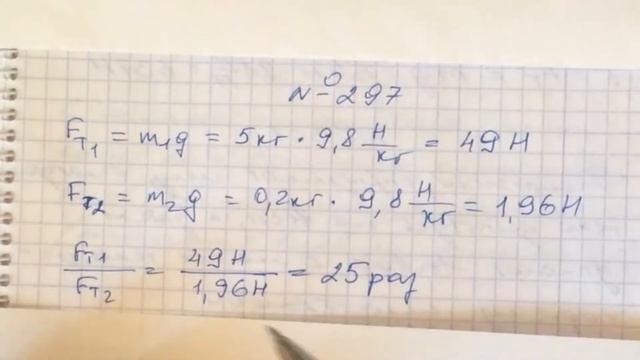 №297
Fт1 = m1g = 5кг · 9,8 Н/кг = 49 Н
Fт2 = m2g = 0,2кг · 9,8 Н/кг = 1,96Н
Fт1/Fт2 = 49Н/1,96Н = 25 раз